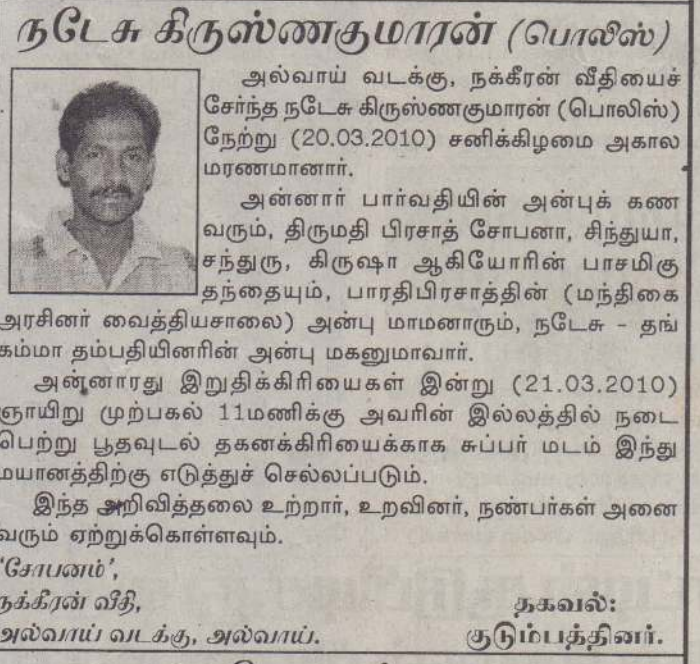 நடேசு கிருஸ்ணகுமாரன் (பொலிஸ்)
அல்வாய் வடக்கு, நக்கீரன் வீதியைச்
சேர்ந்த நடேசு கிருஸ்ணகுமாரன் (பொலிஸ்)
நேற்று (20.03.2010) சனிக்கிழமை அகால
மரணமானார்.
அன்னார் பார்வதியின் அன்புக் கண
வரும், திருமதி பிரசாத் சோபனா, சிந்துயா,
சந்துரு, கிருஷா ஆகியோரின் பாசமிகு
தந்தையும், பாரதிபிரசாத்தின் (மந்திகை
அரசினர் வைத்தியசாலை) அன்பு மாமனாரும், நடேசு - தங்
கம்மா தம்பதியினரின் அன்பு மகனுமாவார்.
அன்னாரது இறுதிக்கிரியைகள் இன்று (21.03.2010)
ஞாயிறு முற்பகல் 11மணிக்கு அவரின் இல்லத்தில் நடை
பெற்று பூதவுடல் தகனக்கிரியைக்காக சுப்பர் மடம் இந்து
மயானத்திற்கு எடுத்துச் செல்லப்படும்.
இந்த அறிவித்தலை உற்றார், உறவினர், நண்பர்கள் அனை
வரும் ஏற்றுக்கொள்ளவும்.
'சோபனம்',
நக்கீரன் வீதி,
அல்வாய் வடக்கு, அல்வாய்.
தகவல்:
குடும்பத்தினர்.